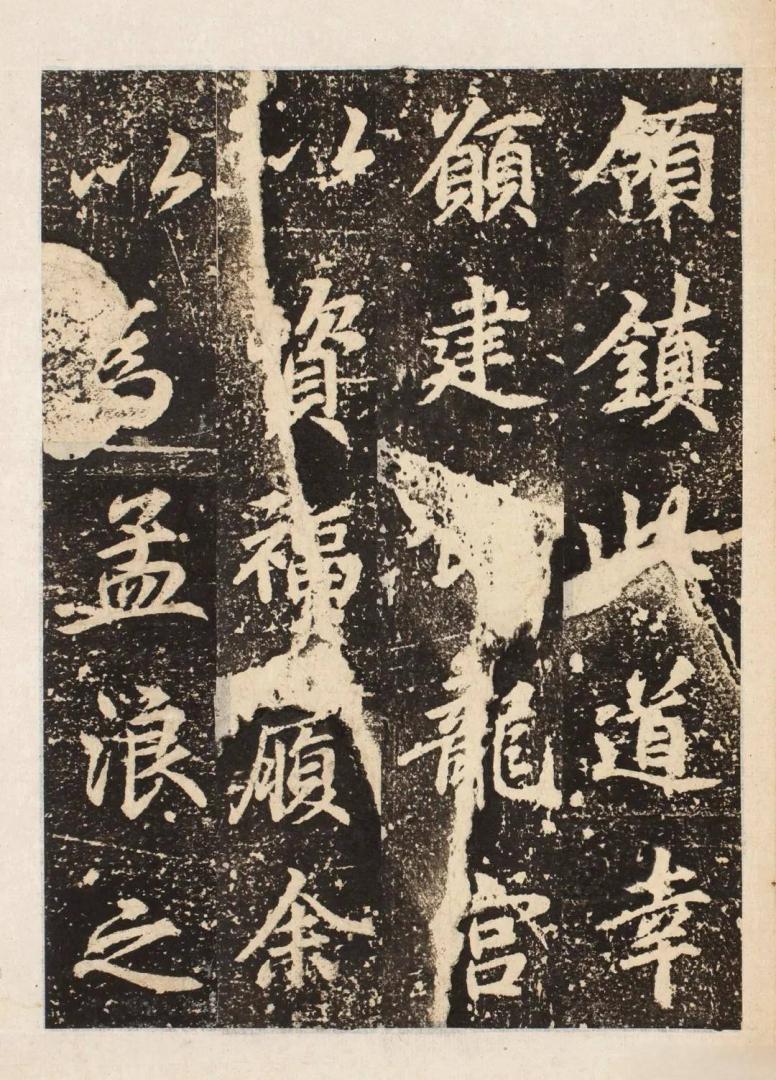 領鎮此道幸
願建龍宮
以資福願余
以為孟浪之